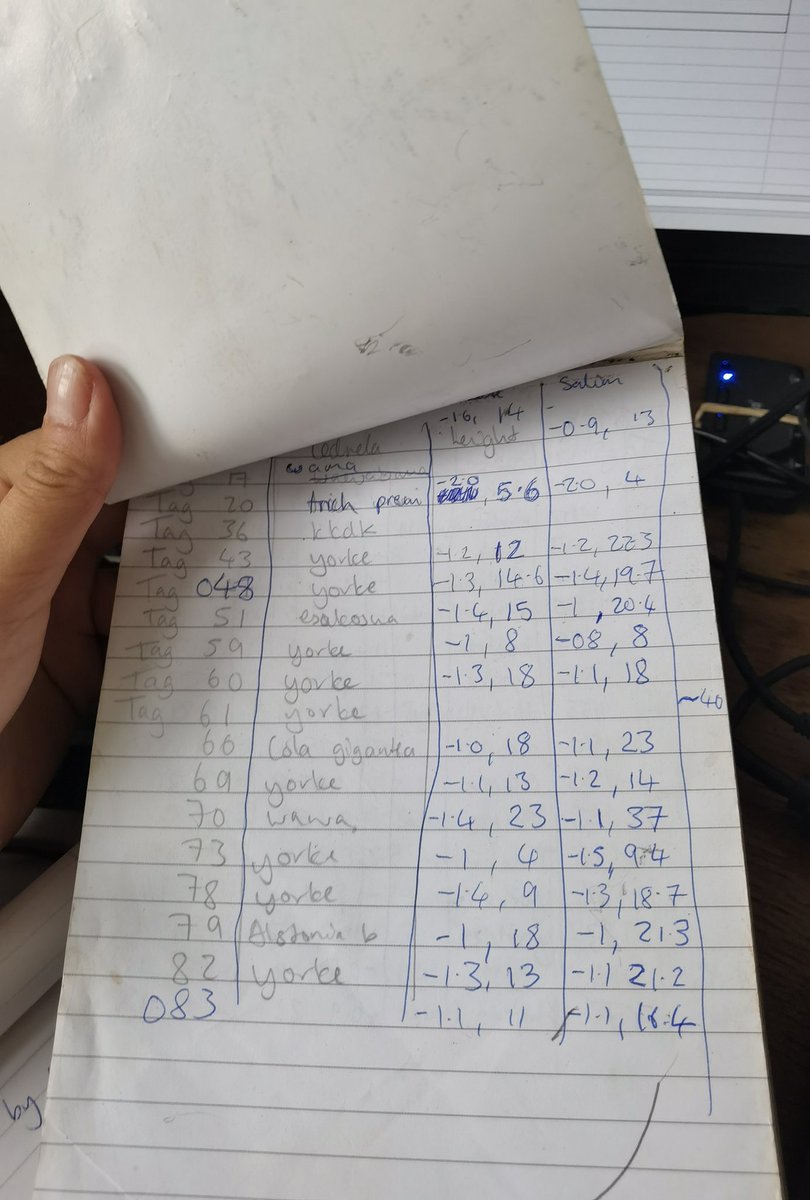 -1.6, 14 Salim
Cedrela height -0.9, 13
wawa
17 -2.0
Tag 20 trich preui , 5.6 -20, 4
Tag 36 kkdk
Tag 43 yorke -1.2, 12 -1.2, 22.3
Tag 048 yorke -1.3, 14.6 -1.4, 19.7
Tag 51 esakosua -1.4, 15 -1, 20.4
Tag 59 yorke -1, 8 -08, 8
Tag 60 yorke -1.3, 18 -1.1, 18
Tag 61 yorke ~40
66 Cola gigantea -1.0, 18 -1.1, 23
69 yorke -1.1, 13 -1.2, 14
70 wawa -1.4, 23 -1.1, 37
73 yorke -1, 4 -1.5, 9.4
78 yorke -1.4, 9 -1.3, 18.7
79 Alstonia b -1, 18 -1, 21.3
82 yorke -1.3, 13 -1.1 21.2
083 -1.1, 11 -1.1, 16.4
by